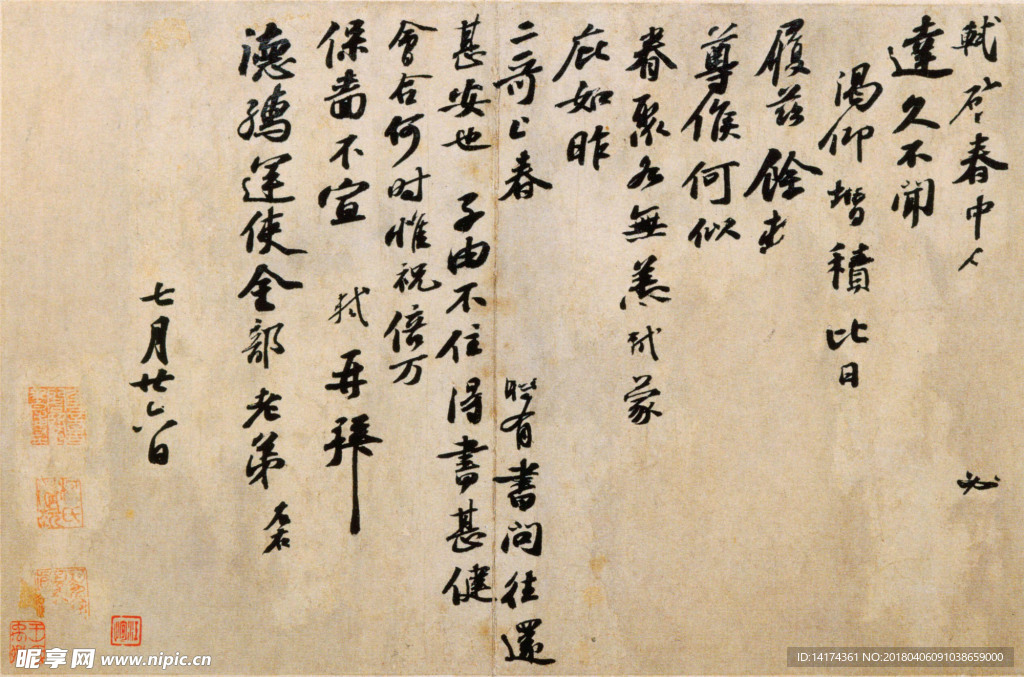 軾启春中人必
達久不聞
渴仰增積比日
履茲餘
尊候何似
眷聚各無恙軾蒙
庇如昨
二哥上春時有書問往還
甚安也子由不住得書甚健
會合何时惟祝倍万
保嗇不宣軾再拜
德孺運使金部老弟
七月廿六日
昵享网 www.nipic.cn
ID:14174361 NO:20180406091038659000